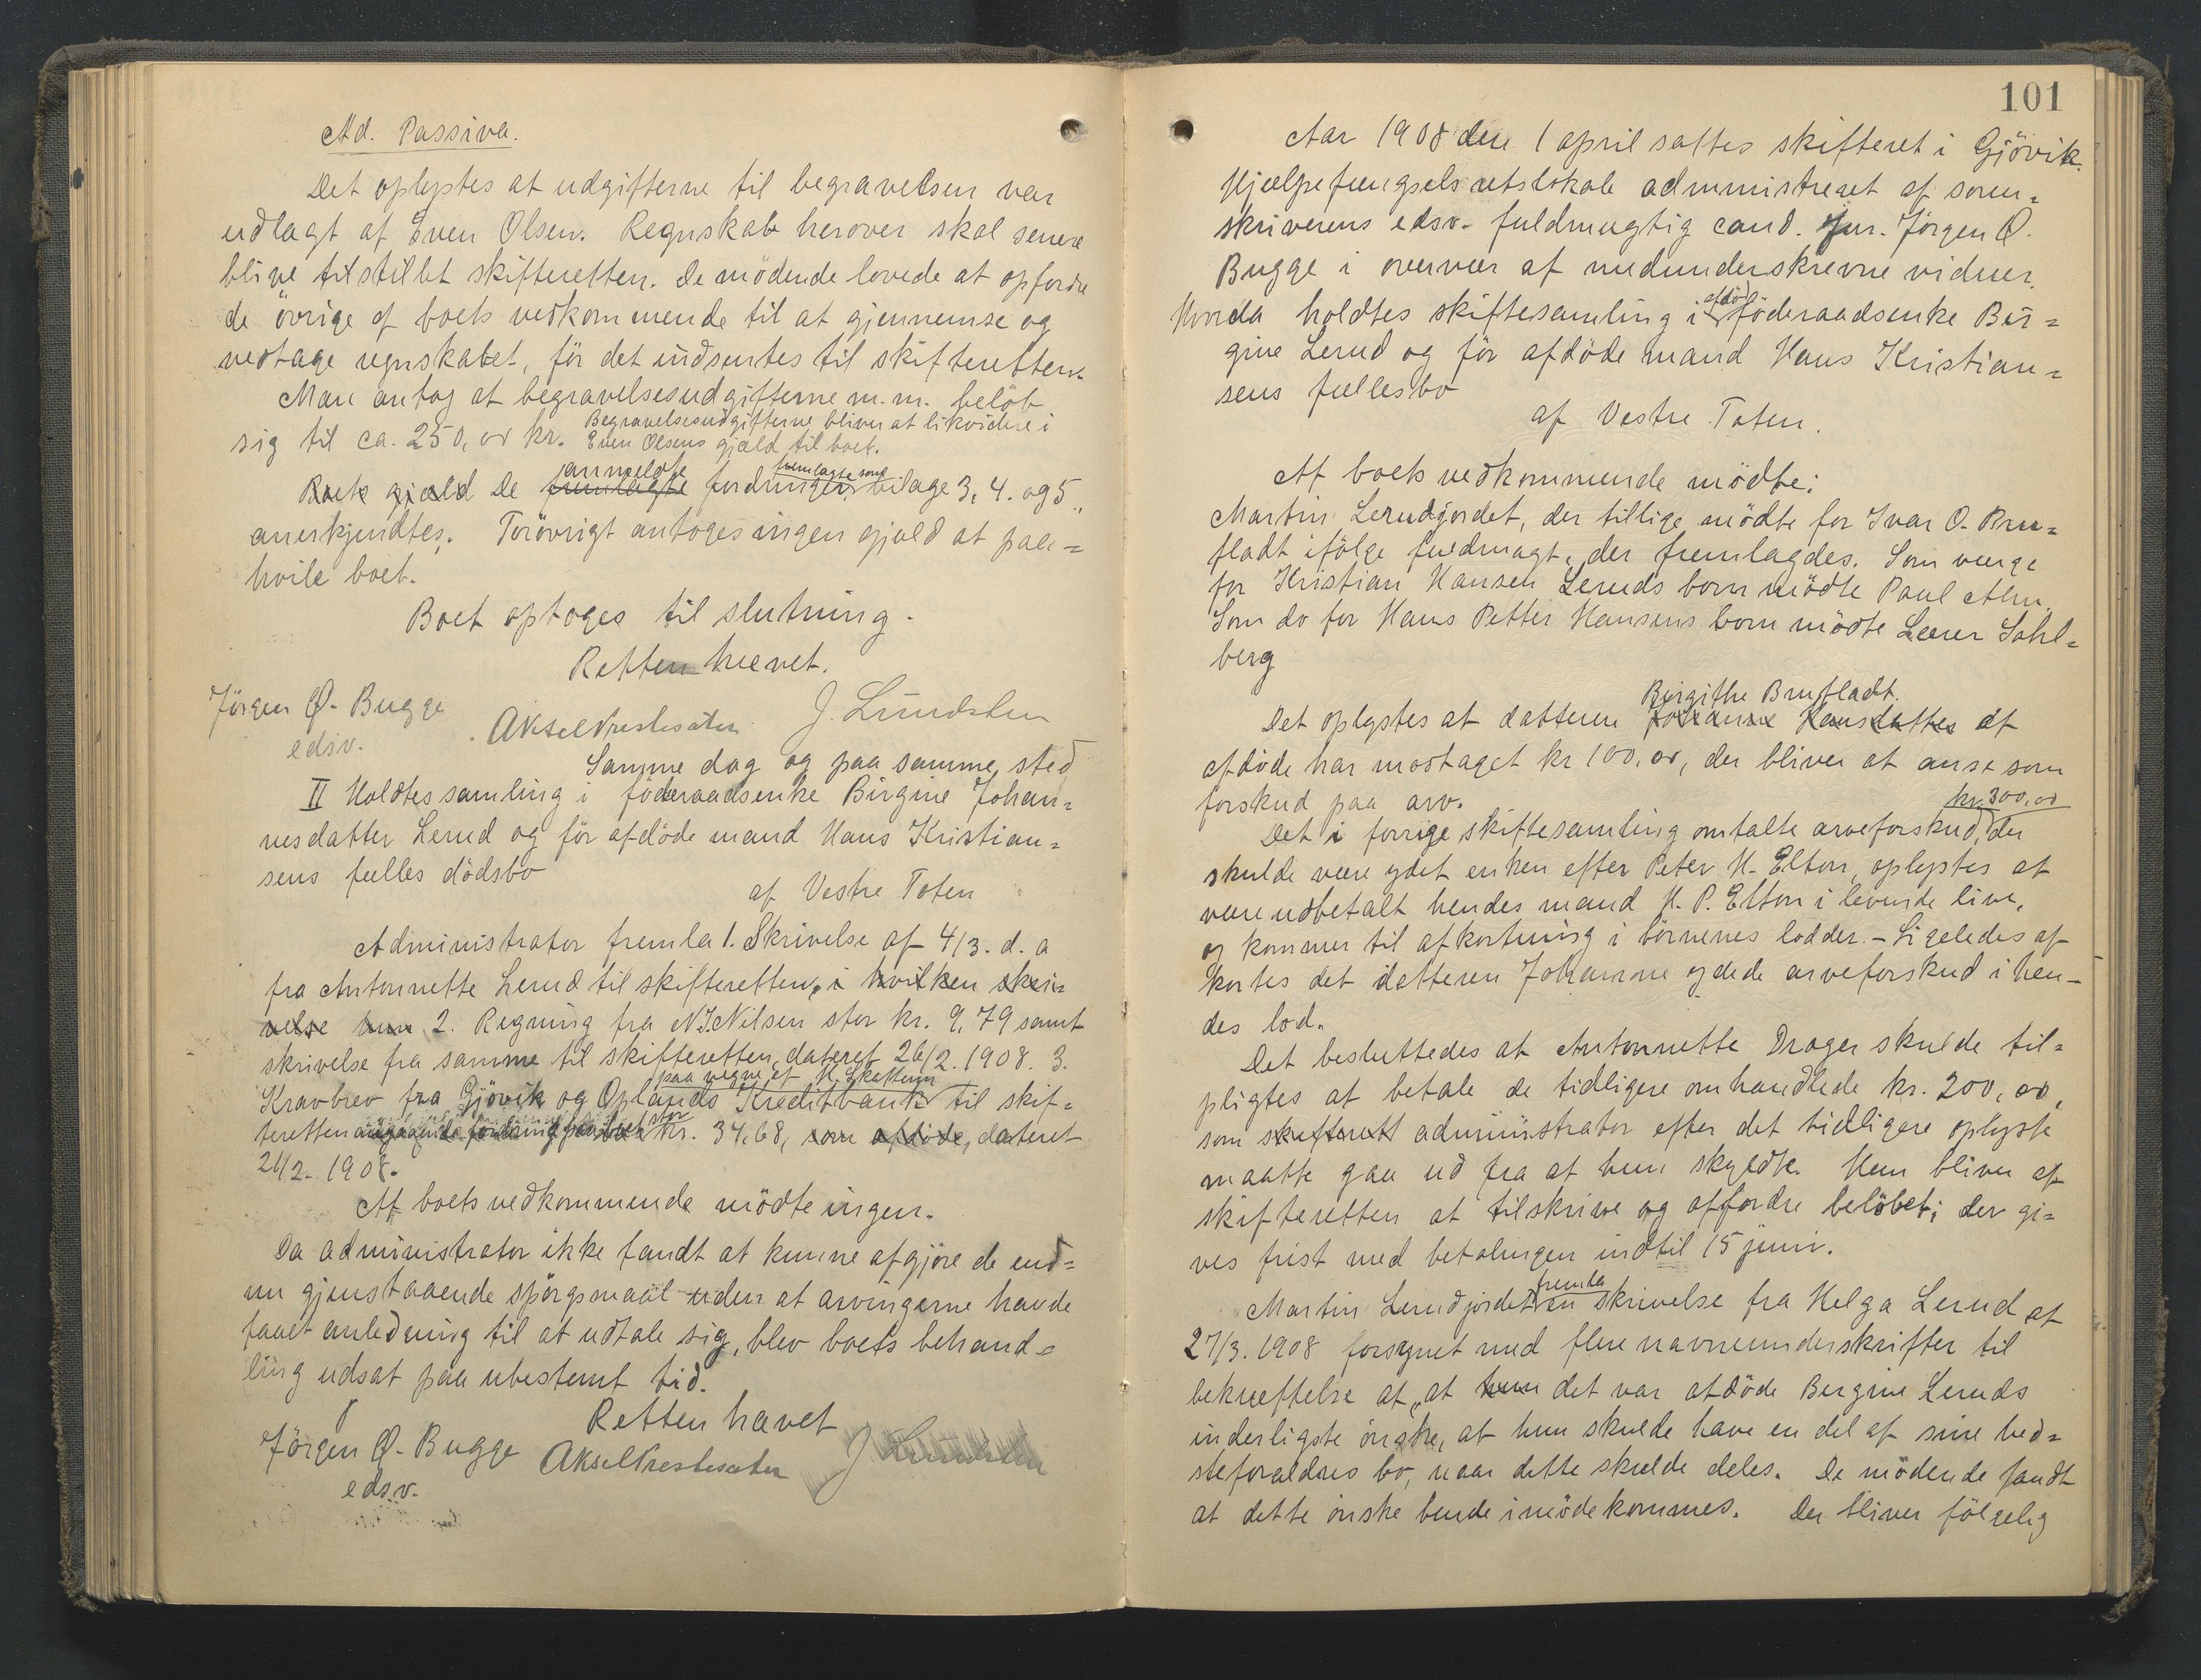 Ad. Passiva.
Det oplystes at udgifterne til begravelsen var
udlagt af Even Olsen. Regnskab herover skal senere
blive tilstillet skifteretten. De mödende lovede at opfordre
de övrige af boets vedkommende til at gjennemse og
vedtage regnskabet, för det indsendtes til skifteretten.
Man antog at begravelsesudgifterne m.m. belöb
sig til ca. 250,00 kr. Begravelsesudgifterne bliver at likvidere i
Even Olsens gjæld til boet.
Boets gjæld De fremlagte anmeldte fordringer, fremlagte som bilage 3, 4. og 5,
anerkjendtes. Forövrigt antoges ingen gjæld at paa=
hvile boet.
Boet optoges til slutning.
Retten hævet.
Jörgen Ø. Bugge
edsv.
Aksel Præstesæter
J. Lundsten
Samme dag og paa samme sted
II Holdtes samling i föderaadsenke Birgine Johan=
nesdatter Lerud og för afdöde mand Hans Kristian=
sens fælles dödsbo
af Vestre Toten
Administrator fremla 1. Skrivelse af 4/3. d. a
fra Antonette Lerud til skifteretten, i hvilken skri=
velse hun 2. Regning fra N.J. Nilsen stor kr. 9,79 samt
skrivelse fra samme til skifteretten, dateret 26/2. 1908. 3.
Kravbrev fra Gjövik og Oplands Kreditbank paa vegne af H. Skattum til skif=
teretten angaaende fordring paa boet stor kr. 34,68, som afdöde, dateret
21/2. 1908.
Af boets vedkommende mödte ingen.
Da administrator ikke fandt at kunne afgjöre de end=
nu gjenstaaende spörgsmaal uden at arvingerne havde
faaet anledning til at udtale sig, blev boets behand=
ling udsat paa ubestemt tid.
Retten hævet
Jörgen Ø. Bugge
edsv.
Aksel Præstesæter
J Lundsten
101
Aar 1908 den 1 april sattes skifteret i Gjövik
Hjælpefængsels retslokale administreret af soren=
skriverens edsv. fuldmægtig cand. jur. Jörgen Ø.
Bugge i overvær af medunderskrevne vidner.
Hvorda holdtes skiftesamling i afdöd föderaadsenke Bir=
gine Lerud og för afdöde mand Hans Kristian=
sens fællesbo
af Vestre Toten.
Af boets vedkommende mödte:
Martin Lerudjordet, der tillige mödte for Ivar O. Bru=
fladt ifölge fuldmagt, der fremlagdes. Som værge
for Kristian Hansen Leruds born mödte Paul Alm.
Som do for Hans Petter Hansens born mödte Lærer Sahl=
berg
Det oplystes at datteren Johanne Hansdatter Birgithe Brufladt. af
afdöde har modtaget kr 100,00, der bliver at anse som
forskud paa arv.
Det i forrige skiftesamling omtalte arveforskud, kr. 300,00 der
skulde være ydet enken efter Peter H. Elton, oplystes at
være udbetalt hendes mand H. P. Elton i levende live,
og kommer til afkortning i börnenes lodder. – Ligeledes af
kortes det datteren Johanne ydede arveforskud i hen-
des lod.
Det besluttedes at Antonette Drager skulde til=
pligtes at betale de tidligere omhandlede kr. 200,00,
som skifterett administrator efter det tidligere oplyste
maatte gaa ud fra at hun skyldte. Hun bliver af
skifteretten at tilskrive og affordre belöbet; der gi=
ves frist med betalingen indtil 15 juni.
Martin Lerudjordet fremla en skrivelse fra Helga Lerud af
27/3. 1908 forsynet med flere navneunderskrifter til
bekræftelse af, at hun det var afdöde Bergine Leruds
inderligste önske, at hun skulde have en del af sine bed=
steforældres bo, naar dette skulde deles. De mödende fandt
at dette önske burde imödekommes. Der bliver fölgelig